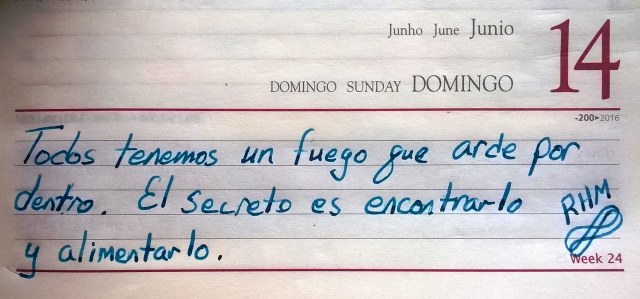 Junho June Junio 14
DOMINGO SUNDAY DOMINGO
-200▸2016
Todos tenemos un fuego que arde por
dentro. El secreto es encontrarlo
y alimentarlo.
RHM
Week 24